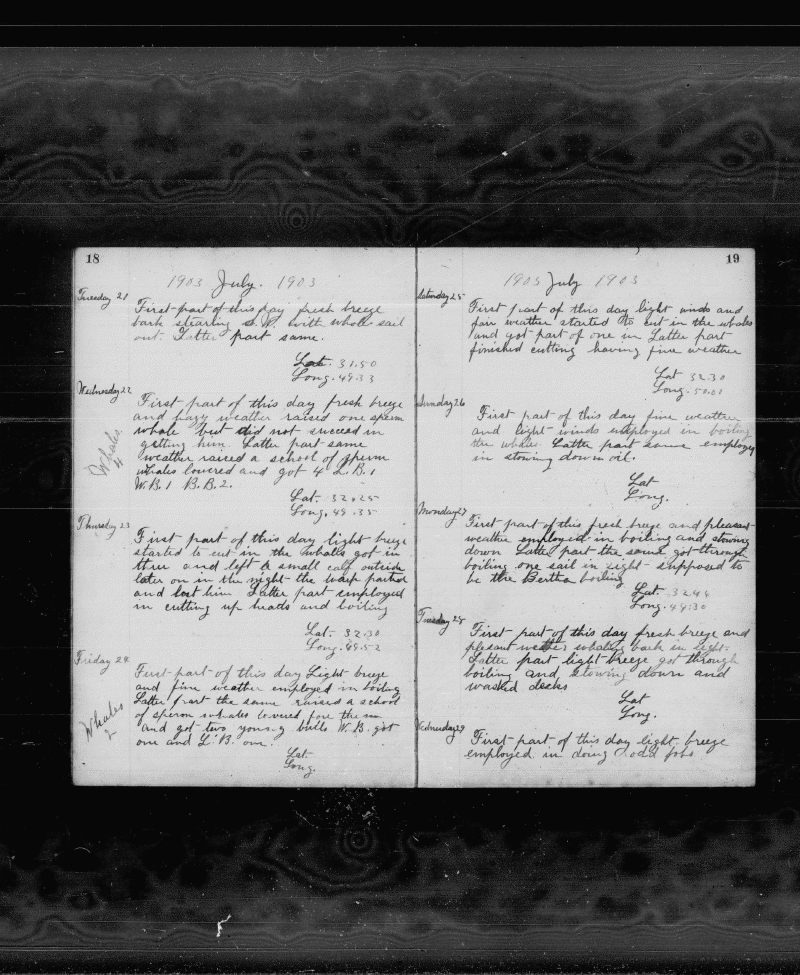 18
1903 July. 1903
Tuesday 21
First part of this day fresh breeze
bark stearing S.W. with whole sail
out. Latter part same.
Lat. 31.50
Long. 49.33
Wednesday 22
First part of this day fresh breeze
and hazy weather raised one sperm
whale but did not succeed in
getting him. Latter part same
weather raised a school of sperm
whales lowered and got 4 L.B.1
W.B.1 B.B.2.
Whales
4
Lat. 32.25
Long. 49.35
Thursday 23
First part of this day light breeze
started to cut in the whales got in
three and left a small calf outside
later on in the night the warp parted
and lost him Latter part employed
in cutting up heads and boiling
Lat. 32.30
Long. 49.52
Friday 24
First part of this day Light breeze
and fine weather employed in boiling
Latter part the same raised a school
of sperm whales lowered fore them
and got two young bulls W.B. got
one and L.B. one.
Whales
2
Lat
Long.
19
1903 July 1903
Saturday 25
First part of this day light winds and
fair weather started to cut in the whales
and got part of one in Latter part
finished cutting having fine weather
Lat 32.30
Long. 50.01
Sunday 26
First part of this day fine weather
and light winds employed in boiling
the whales. Latter part same employ
in stowing down oil.
Lat
Long.
Monday 27
First part of this fresh breeze and pleasant
weather employed in boiling and stowing
down Latter part the same got through
boiling one sail in sight supposed to
be the Bertha boiling
Lat. 32.44
Long. 49.30
Tuesday 28
First part of this day fresh breeze and
pleasent weather whaling bark in sight.
Latter part light breeze got through
boiling and stowing down and
washed decks
Lat
Long.
Wednesday 29
First part of this day light breeze
employed in doing odd jobs